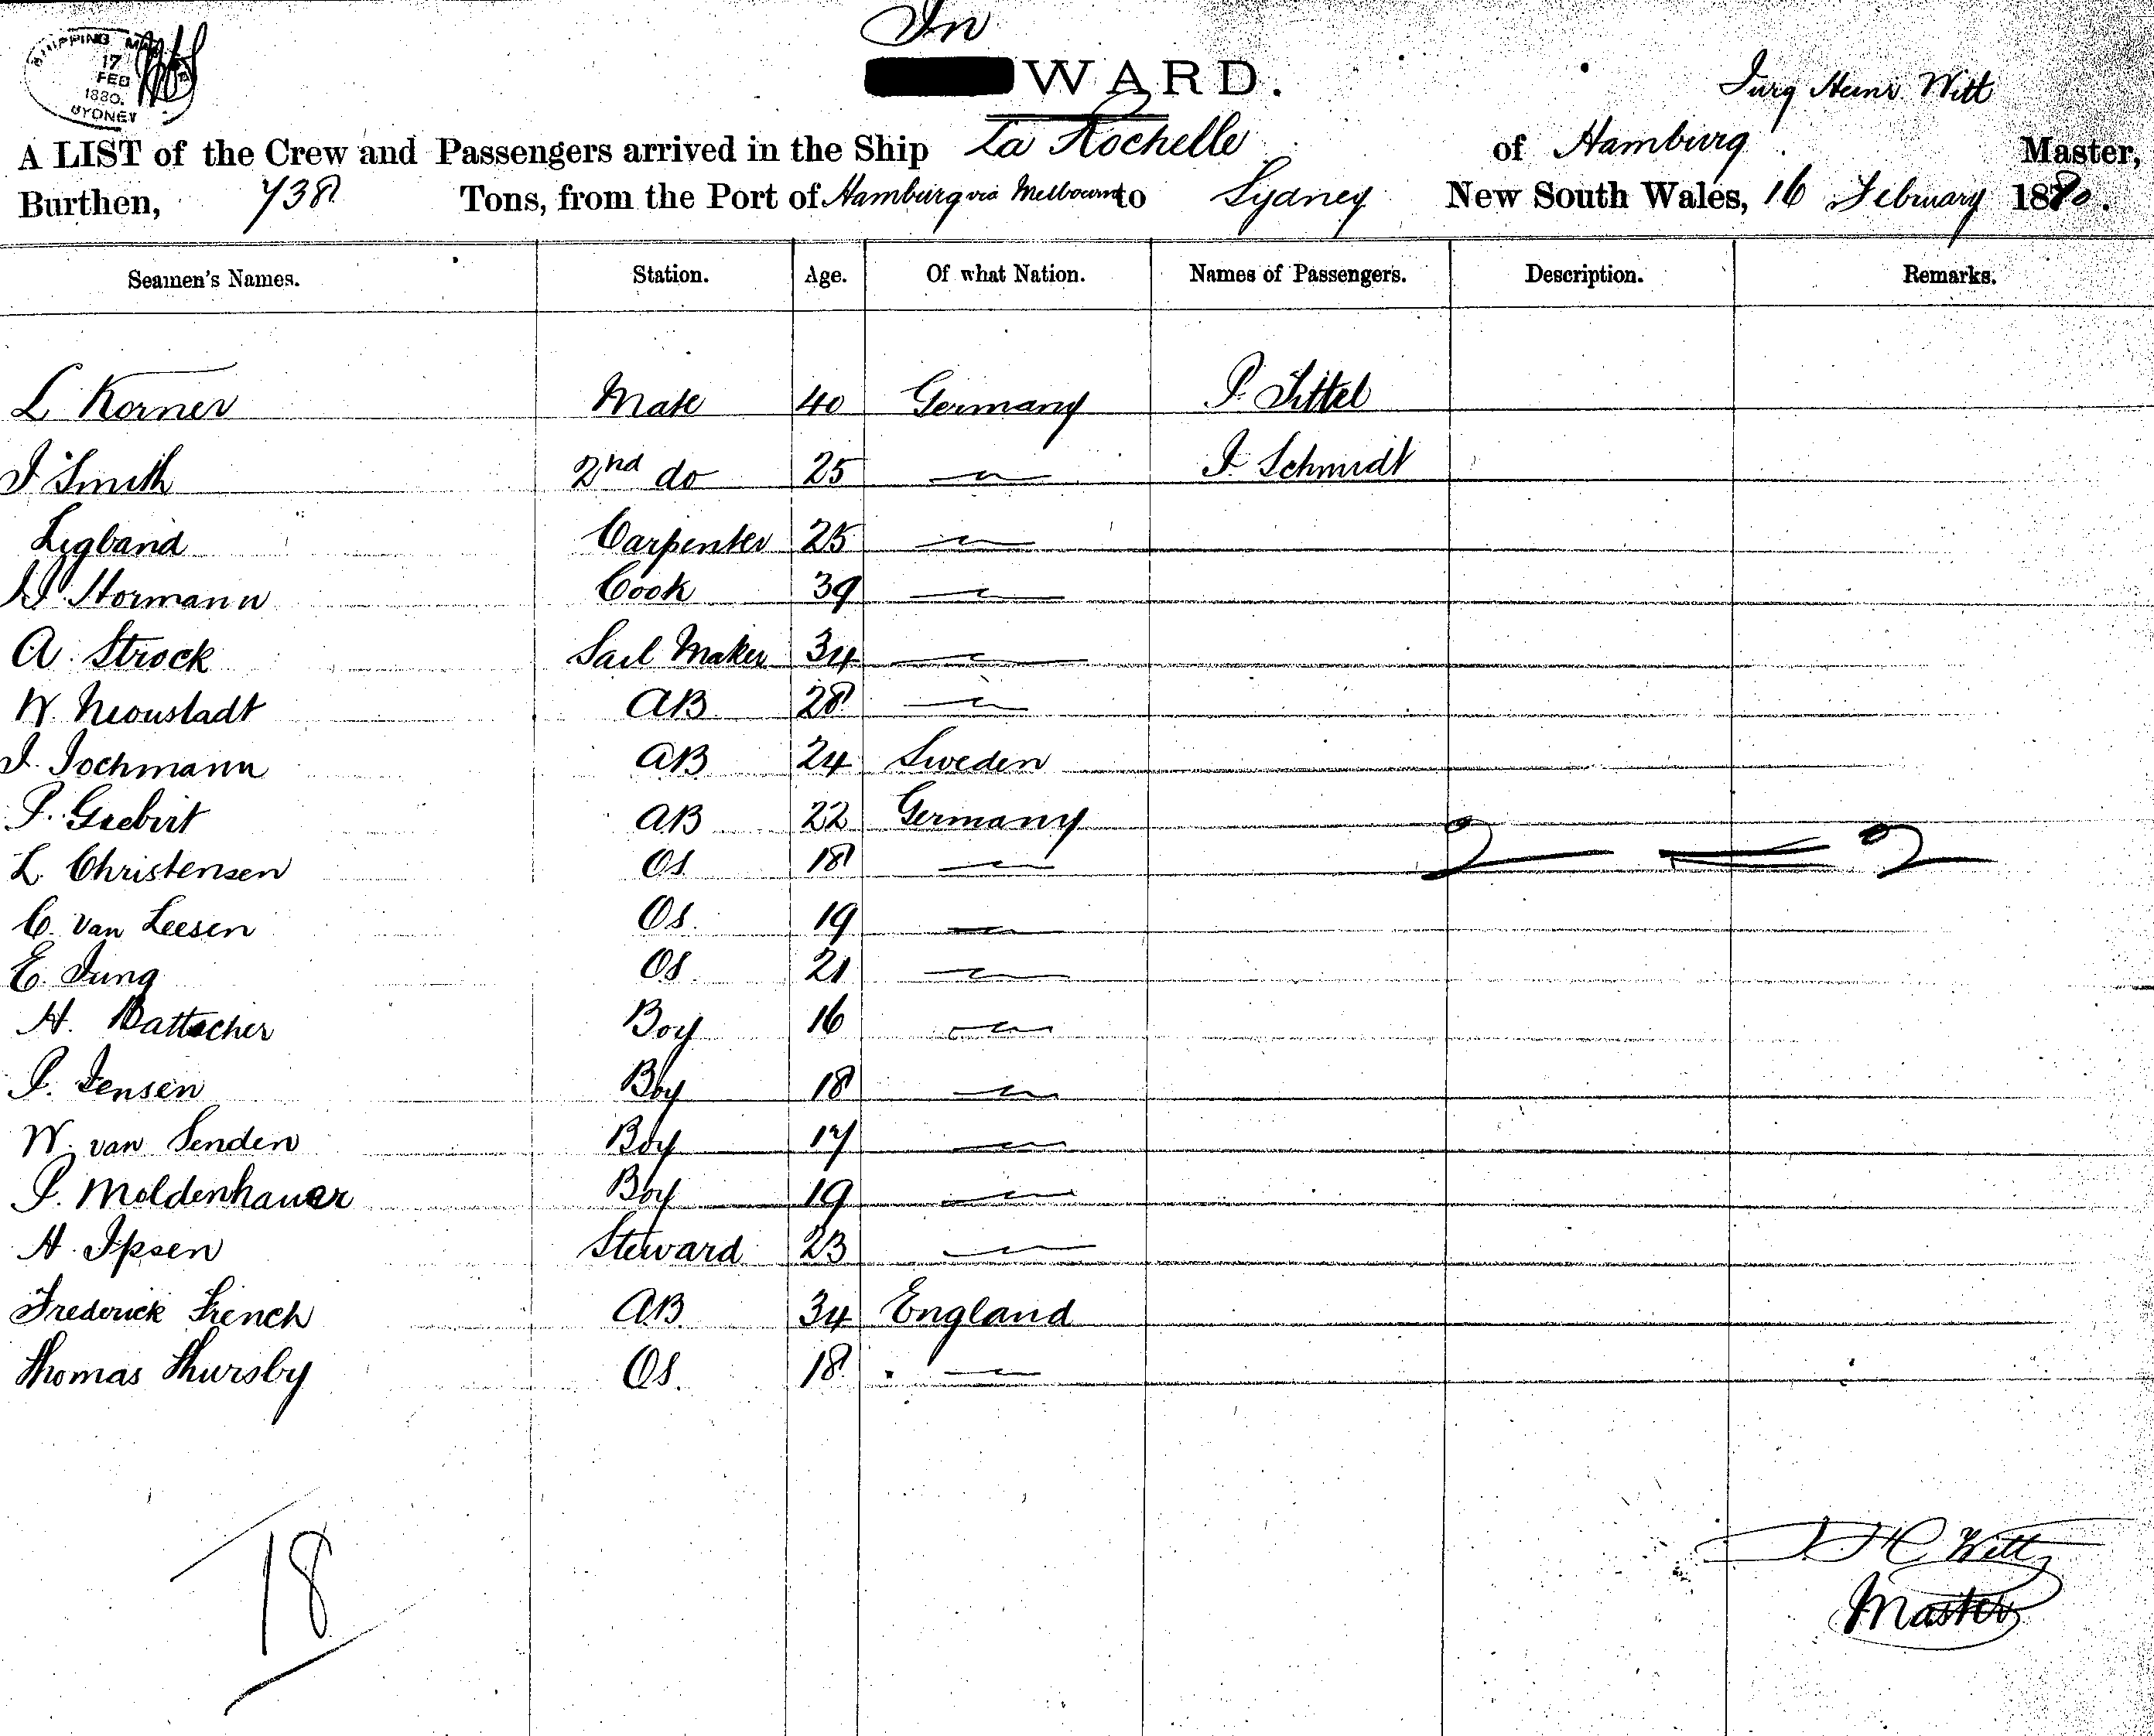 In
WARD.
SHIPPING MAS
17
FEB
1880.
SYDNEY
Jurg Heinr Witt
A LIST of the Crew and Passengers arrived in the Ship La Rochelle of Hamburg Master,
Burthen, 738 Tons, from the Port of Hamburg via Melbourne to Sydney New South Wales, 16 February 1880.
Seamen's Names. Station. Age. Of what Nation. Names of Passengers. Description. Remarks.
L Korner Mate 40 Germany P. Sittel
J Smith 2nd do 25 — J. Schmidt
Ligband Carpenter 25 —
Hormann Cook 39 —
A. Strock Sail Maker 34 —
W. Neoustadt AB 28 —
J. Jochmann AB 24 Sweden
P. Grebirt AB 22 Germany
L. Christensen OS 18 —
C. van Leesen OS. 19 —
E. Jung OS. 21 —
H. Battscher Boy 16 —
P. Jensen Boy 18 —
W. van Senden Boy 17 —
P. Moldenhauer Boy 19 —
H. Ipsen Steward 23 —
Frederick French AB 34 England
Thomas Thursby OS. 18 —
18
J H C Witt
Master